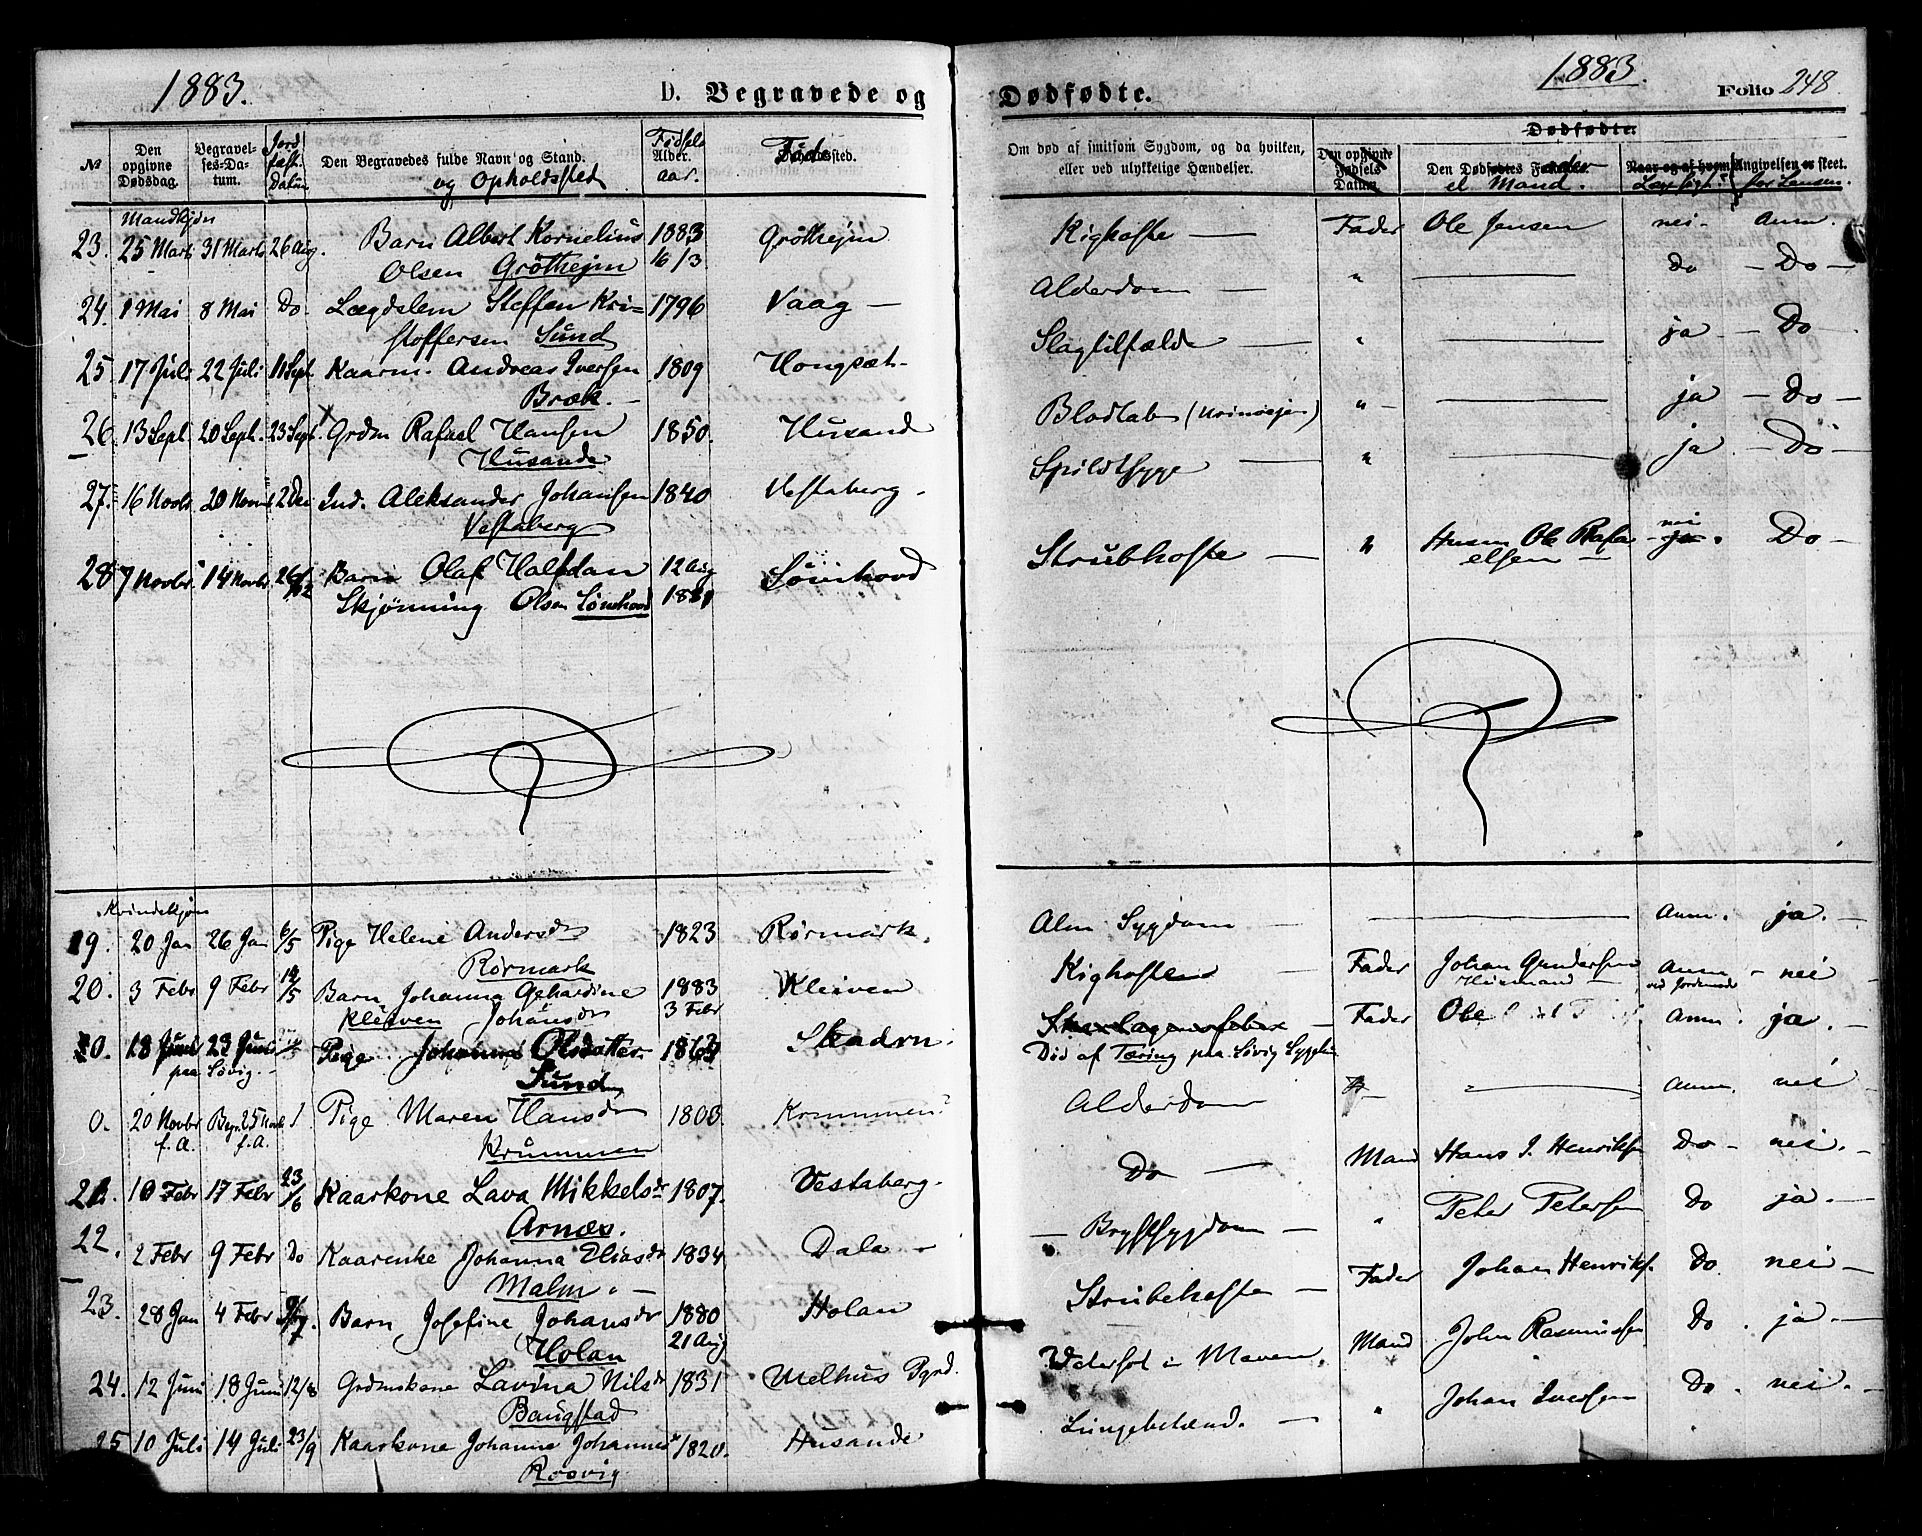 1883. D. Begravede og Dødfødte. 1883. Folio 248.
№ Den opgivne Dødsdag. Begravelses-Datum. Jordfæst. Datum Den Begravedes fulde Navn og Stand. og Opholdssted Fødsels Alder. aar. Føde sted. Om død af smitsom Sygdom, og da hvilken, eller ved ulykkelige Hændelser. Den opgivne Fødsels Datum. Dødfødte. Den Dødfødtes Fader el Mand. Naar og af hvem Angivelsen er skeet.
Mandkjøn
23. 25 Marts 31 Marts 26 Aug. Barn Albert Kornelius 1883 Gröttheim Kighoste — Fader Ole Jensen nei - Anm.
Olsen Grötthejm 16/3
24. 1 Mai 8 Mai Do Lægdslem Steffen Kri= 1796 Vaag — Alderdom — " — Do — Do —
stoffersen Sund
25 17 Juli 22 Juli 11 Sept. Kaarm. Andreas Iversen 1809 Hongsæt - Slagtilfælde — " — ja — Do
Bræk. —
26. 13 Sept. 20 Sept. 23 Sept. Grdm Rafael Hansen 1850. Husande Blodtab (Urinveje) " — ja — Do —
Husande
27. 16 Novbr 20 Novbr 2 Dec Ind. Aleksander Johansen 1840 Vestaberg - Spildtsyge — " — ja — Do —
Vestaberg
28 7 Novbr. 14 Novbr. 26/12 Barn Olaf Halfdan 12 Aug Sörihovd Strubhoste — " Husm Ole Rafa nei ja. Do —
Skjønning Olsen 1881 elsen —
Kvindekjøn
19. 20 Jan 26 Jan 6/5 Pige Helene Andersdr 1823 Rørmark. Alm Sygdom — — Anm. ja. —
Rørmark
20. 3 Febr 9 Febr 14/5 Barn Johanna Gehardine 1883 Kleiven Kighosten — Fader Johan Gundersen Anm — nei
Kleiven Johansdr 3 Febr Husmand ved Jordemoder
0. 18 Juni 23 Juni Pige Johanna Olsdatter 1863 Skarlagensfeber — Fader Ole Anm. ja. —
paa Søvig. — Sund Död af Tæring paa Søvig
0. 20 Novbr Begr. 25 Novbr Pige Maren Hansdr 1803. Krummen? Alderdom — Anm. nei
f. A. f. A. Krummen
21. 10 Febr 17 Febr 23/6 Kaarkone Lava Mikkelsdr 1807. Vestaberg. Do — Mand Hans J. Henriks Do — nei. —
Arnæs.
22. 2 Febr 9 Febr Do Kaarenke Johanna Eliasdr 1834 Dala — — Brystsygdom — " Peter Petersen Do ja. —
Malm. —
23. 28 Jan 4 Febr Barn Josefine Johansdr 1880 Holan Strubehoste — Fader Johan Henriks. Do. nei —
Holan 21 Aug
24. 12 Juni 18 Juni 12/8 Grdmskone Lavina Nilsdr 1831 Melhus Pgrd. i Maven. Mand John Rasmussen Do. ja. —
Baugstad
25 10 Juli 14 Juli 23/9 Kaarkone Johanne Johannesdr 1820. Husande Lungebetænd. — " Johan Iversen Do. nei. —
Rosvig